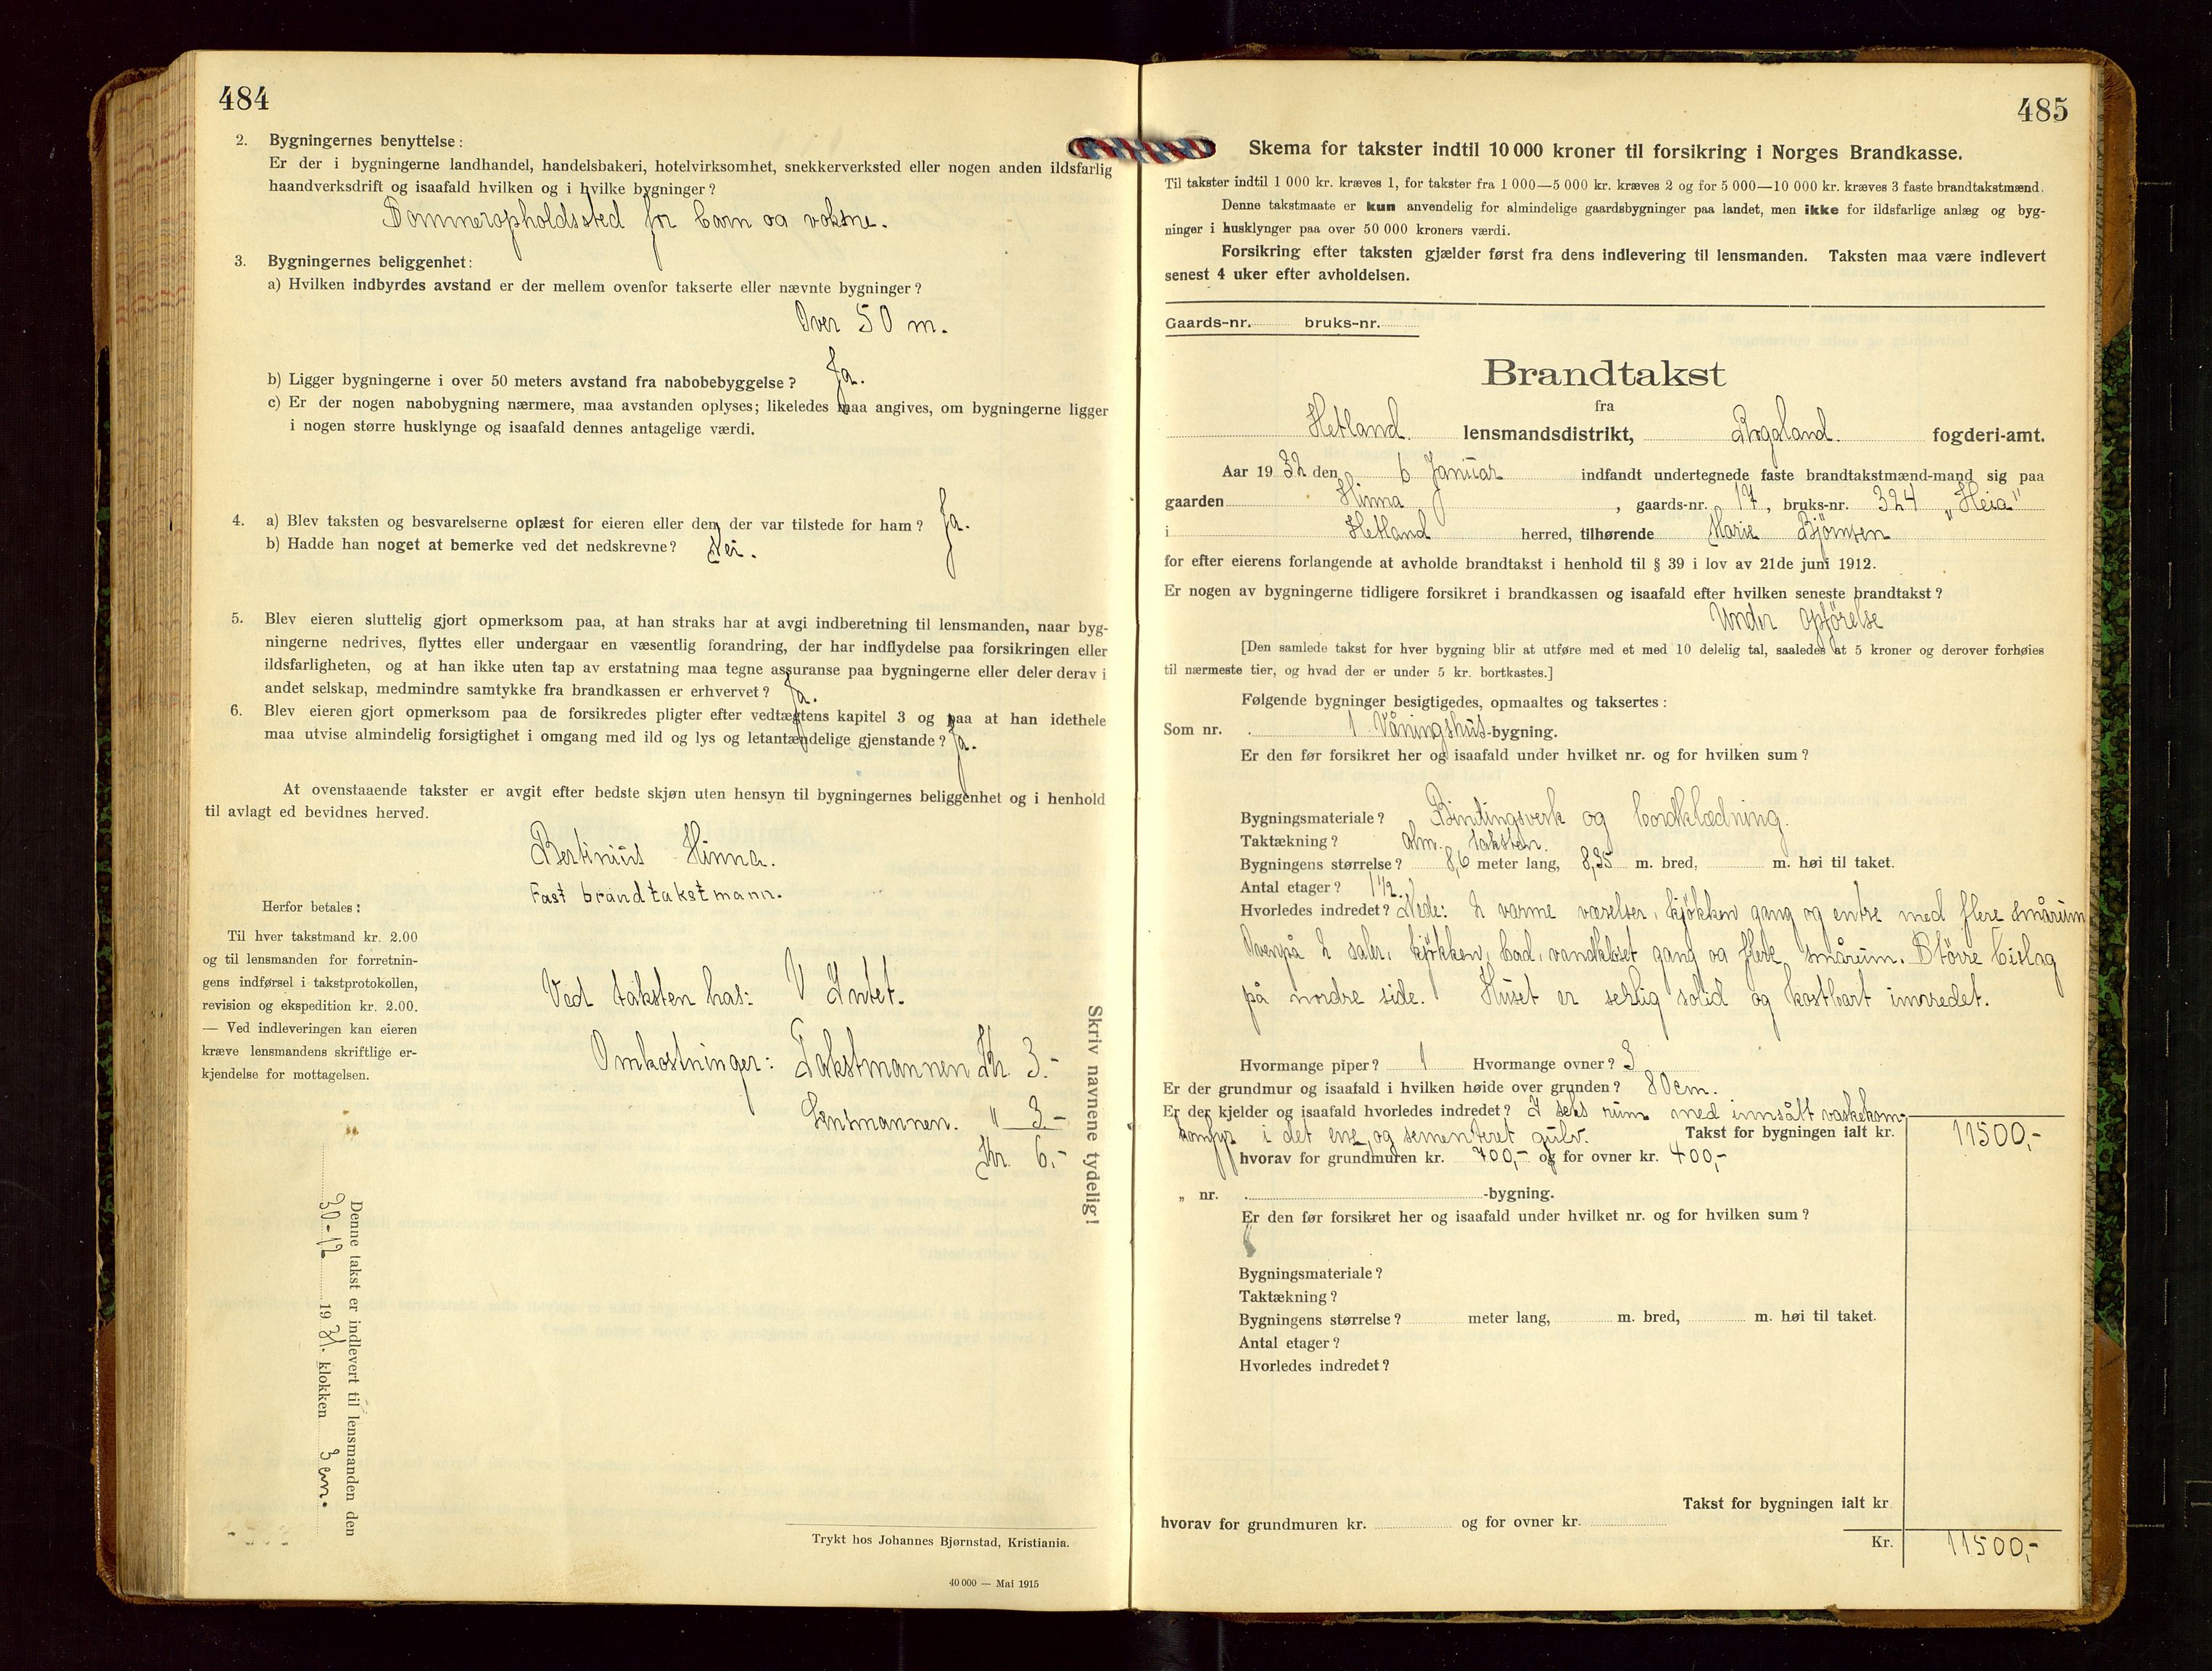 484
2. Bygningernes benyttelse:
Er der i bygningerne landhandel, handelsbakeri, hotelvirksomhet, snekkerverksted eller nogen anden ildsfarlig
haandverksdrift og isaafald hvilken og i hvilke bygninger?
Sommeropholdssted for barn og voksne.
3. Bygningernes beliggenhet:
a) Hvilken indbyrdes avstand er der mellem ovenfor takserte eller nævnte bygninger?
Over 50 m.
b) Ligger bygningerne i over 50 meters avstand fra nabobebyggelse? Ja.
c) Er der nogen nabobygning nærmere, maa avstanden oplyses; likeledes maa angives, om bygningerne ligger
i nogen større husklynge og isaafald dennes antagelige værdi.
4. a) Blev taksten og besvarelserne oplæst for eieren eller den, der var tilstede for ham? Ja.
b) Hadde han noget at bemerke ved det nedskrevne? Nei.
5. Blev eieren sluttelig gjort opmerksom paa, at han straks har at avgi indberetning til lensmanden, naar byg-
ningerne nedrives, flyttes eller undergaar en væsentlig forandring, der har indflydelse paa forsikringen eller
ildsfarligheten, og at han ikke uten tap av erstatning maa tegne assuranse paa bygningerne eller deler derav i
andet selskap, medmindre samtykke fra brandkassen er erhvervet? Ja.
6. Blev eieren gjort opmerksom paa de forsikredes pligter efter vedtægtens kapitel 3 og paa at han idethele
maa utvise almindelig forsigtighet i omgang med ild og lys og letantændelige gjenstande? Ja.
At ovenstaaende takster er avgit efter bedste skjøn uten hensyn til bygningernes beliggenhet og i henhold
til avlagt ed bevidnes herved.
Bertinius Hinna.
Fast brandtakstmann.
Herfor betales:
Til hver takstmand kr. 2.00
og til lensmanden for forretnin-
gens indførsel i takstprotokollen,
revision og ekspedition kr. 2.00.
— Ved indleveringen kan eieren
kræve lensmandens skriftlige er-
kjendelse for mottagelsen.
Ved taksten has: V Intet.
Omkostninger: Takstmannen Kr. 3.-
Lensmannen. " 3.-
Kr. 6.-
Skriv navnene tydelig!
Denne takst er indlevert til lensmanden den
30-12 1931. klokken 3 em.
Trykt hos Johannes Bjørnstad, Kristiania.
40 000 — Mai 1915
485
Skema for takster indtil 10 000 kroner til forsikring i Norges Brandkasse.
Til takster indtil 1 000 kr. kræves 1, for takster fra 1 000—5 000 kr. kræves 2 og for 5 000—10 000 kr. kræves 3 faste brandtakstmænd.
Denne takstmaate er kun anvendelig for almindelige gaardsbygninger paa landet, men ikke for ildsfarlige anlæg og byg-
ninger i husklynger paa over 50 000 kroners værdi.
Forsikring efter taksten gjælder først fra dens indlevering til lensmanden. Taksten maa være indlevert
senest 4 uker efter avholdelsen.
Gaards-nr. bruks-nr.
Brandtakst
fra
Hetland. lensmandsdistrikt, Rogaland. fogderi-amt.
Aar 1932 den 6 Januar indfandt undertegnede faste brandtakstmænd-mand sig paa
gaarden Hinna, gaards-nr. 17, bruks-nr. 324 "Heia"
i Hetland herred, tilhørende Marie Bjørnsen
for efter eierens forlangende at avholde brandtakst i henhold til § 39 i lov av 21de juni 1912.
Er nogen av bygningerne tidligere forsikret i brandkassen og isaafald efter hvilken seneste brandtakst?
Under opførelse
[Den samlede takst for hver bygning blir at utføre med et med 10 delelig tal, saaledes at 5 kroner og derover forhøies
til nærmeste tier, og hvad der er under 5 kr. bortkastes.]
Følgende bygninger besigtigedes, opmaaltes og taksertes:
Som nr. 1 Våningshus-bygning.
Er den før forsikret her og isaafald under hvilket nr. og for hvilken sum?
Bygningsmateriale? Bindingsverk og bordklædning.
Taktækning? alm. taksten.
Bygningens størrelse? 8,6 meter lang, 8,35 m. bred, m. høi til taket.
Antal etager? 1½.
Hvorledes indredet? Nede: 2 varme værelser, kjøkken gang og entre med flere smårum
Ovenpå 2 saler, kjøkken, bad, vandkloset gang og flere smårum. Større bislag
på nordre side. Huset er serlig solid og kostbart innredet.
Hvormange piper? 1 Hvormange ovner? 3
Er der grundmur og isaafald i hvilken høide over grunden? 80 cm.
Er der kjelder og isaafald hvorledes indredet? I seks rum med innsått vaskekom-
komfyr i det ene, og sementeret gulv. Takst for bygningen ialt kr. 11500,-
hvorav for grundmuren kr. 700,- og for ovner kr. 400,-
„ nr. -bygning.
Er den før forsikret her og isaafald under hvilket nr. og for hvilken sum?
Bygningsmateriale?
Taktækning?
Bygningens størrelse? meter lang, m. bred, m. høi til taket.
Antal etager?
Hvorledes indredet?
Takst for bygningen ialt kr.
hvorav for grundmuren kr. og for ovner kr.
Kr. 11500,-